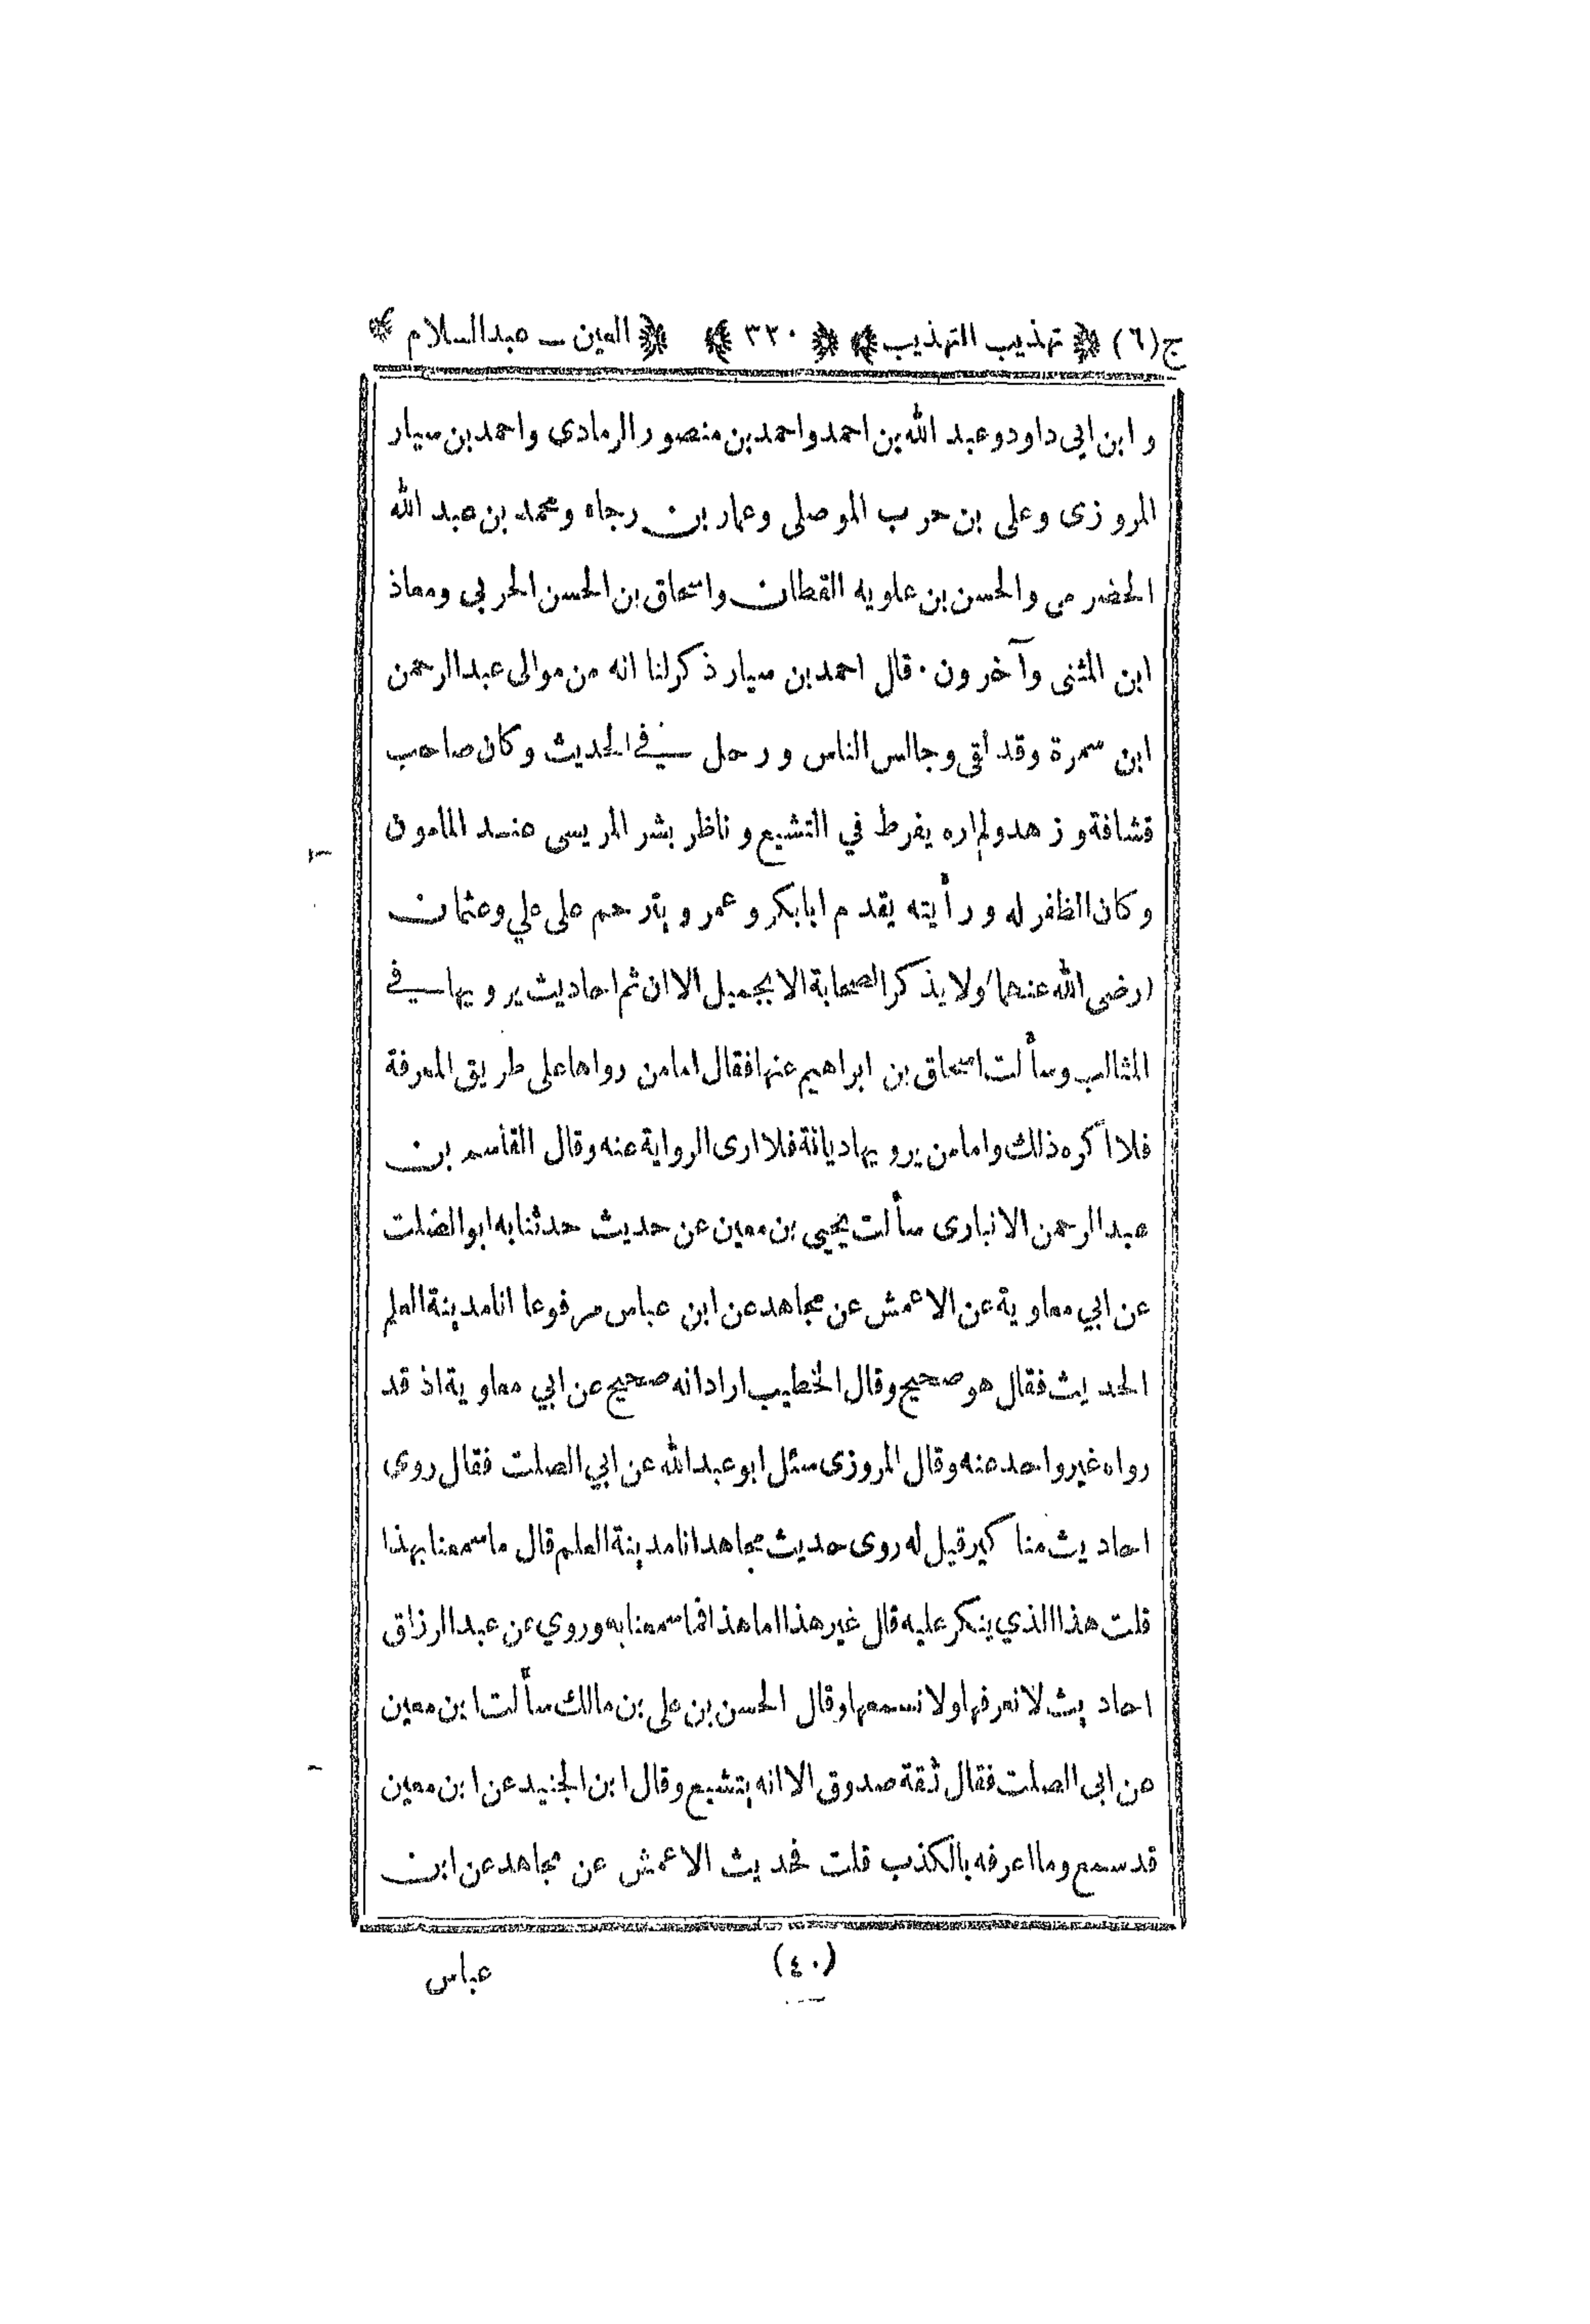 ج(٦) ﴿ تهذيب التهذيب ﴾ ﴿ ٣٢٠ ﴾ ﴿ العين ـ عبدالسلام ﴾
و ابن ابي داود وعبد الله بن احمد واحمد بن منصور الرمادي واحمد بن سيار
المروزى وعلى بن حرب الموصلى وعمار بن رجاء ومحمد بن عبد الله
الحضرمى والحسن بن علويه القطان واسحاق بن الحسن الحربي ومعاذ
ابن المثنى وآخرون · قال احمد بن سيار ذكر لنا انه من موالى عبدالرحمن
ابن سمرة وقد لقى وجالس الناس ورحل في الحديث وكان صاحب
قشافة و زهد ولم اره يفرط في التشيع و ناظر بشر المريسى عند المامون
وكان الظفر له ورأيته يقدم ابابكر وعمر ويترحم على علي وعثمان
(رضى الله عنهما) ولا يذكر الصحابة الا بجميل الا ان ثم احاديث يرويها في
المثالب وسألت اسحاق بن ابراهيم عنها فقال اما من رواها على طريق المعرفة
فلا اكره ذلك واما من يرويها ديانة فلا ارى الرواية عنه وقال القاسم بن
عبدالرحمن الانبارى سألت يحيى بن معين عن حديث حدثنا به ابو الصلت
عن ابي معاوية عن الاعمش عن مجاهد عن ابن عباس مرفوعا انا مدينة العلم
الحديث فقال هو صحيح وقال الخطيب اراد انه صحيح عن ابي معاوية اذ قد
رواه غير واحد عنه وقال المروزى سئل ابو عبدالله عن ابي الصلت فقال روى
احاديث مناكير قيل له روى حديث مجاهد انا مدينة العلم قال ما سمعنا بهذا
قلت هذا الذي ينكر عليه قال غير هذا اما هذا فما سمعنا به وروي عن عبدالرزاق
احاديث لا نعرفها ولا نسمعها وقال الحسن بن على بن مالك سألت ابن معين
عن ابى الصلت فقال ثقة صدوق الا انه يتشيع وقال ابن الجنيد عن ابن معين
قد سمع وما اعرفه بالكذب قلت فحديث الاعمش عن مجاهد عن ابن
(٤٠)
عباس